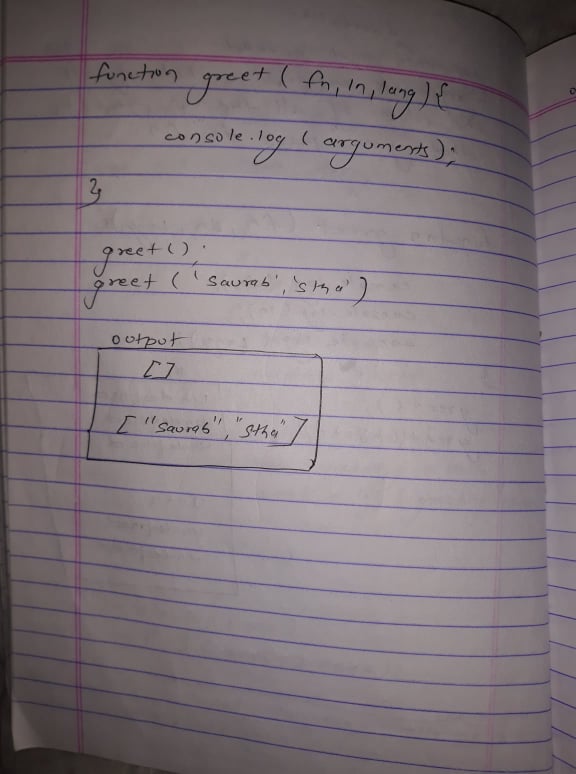 function greet ( fn, ln, lang) {
console.log ( arguments);
}
greet ();
greet ( 'Saurab', 'stha')
output
[]
[ "Saurab", "Stha" ]